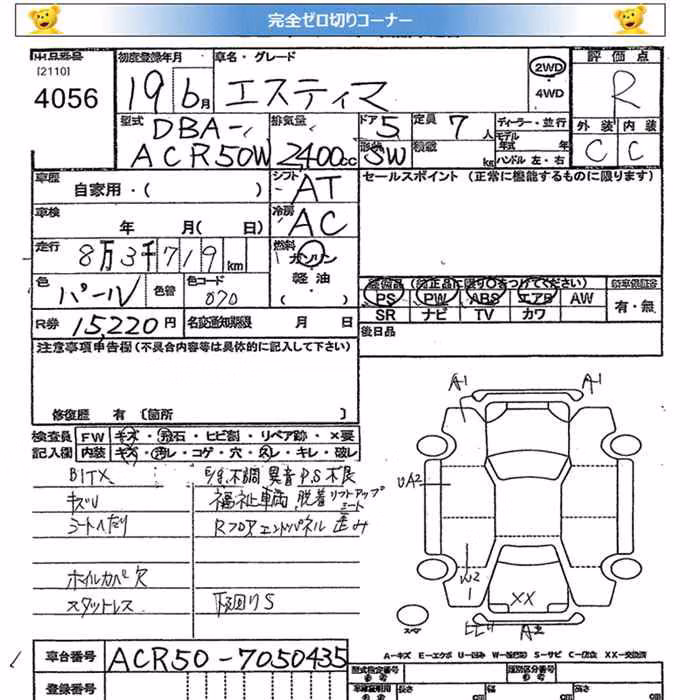 完全ゼロ切りコーナー
出品番号
[2110]
4056
初度登録年月
19 6月
車名・グレード
エスティマ
2WD
4WD
評価点
R
型式
DBA-
ACR50W
排気量
2400cc
ドア 5
形状 SW
定員 7人
積載 kg
ディーラー・並行
モデル年式 年
ハンドル 左・右
外装 内装
C C
車歴
自家用・( )
シフト AT
セールスポイント (正常に機能するものに限ります)
車検
年 月( 日)
冷房 AC
走行
8万3千719km
燃料
ガソリン
・
軽油
・( )
色
パール
色替
色コード
070
装備品 (純正品に限り○をつけてください)
PS PW ABS エアB AW
SR ナビ TV カワ
有・無
R券 15,220円
名変通知期限 月 日
後日品
注意事項申告欄(不具合内容等は具体的に記入して下さい)
修復歴 有 [箇所 ]
検査員
記入欄
FW キズ・飛石・ヒビ割・リペア跡・×要
内装 キズ・汚レ・コゲ・穴・スレ・キレ・破レ
キズU
シートへたり
ホイルカバ欠
スタットレス
不調 異音 P.S不良
福祉車両 脱着リフトアップ
シート
Rフロア エンドパネル 歪み
下廻りS
A1 A1
UA2
W2
1
XX
A2
スペア
A-キズ E-エクボ U-凹み W-波打ち S-サビ C-腐食 XX-交換済
車台番号
ACR50-7050435
登録番号
型式指定番号
類別区分番号
長さ cm 幅 cm 高さ cm